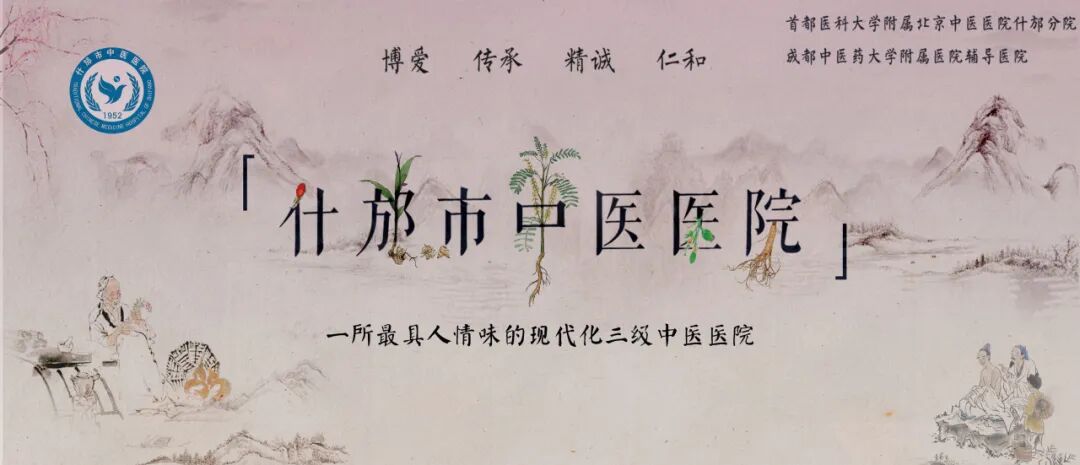 首都医科大学附属北京中医医院什邡分院
成都中医药大学附属医院辅导医院
博爱 传承 精诚 仁和
什邡市中医医院
1952
「什邡市中医医院」
一所最具人情味的现代化三级中医医院